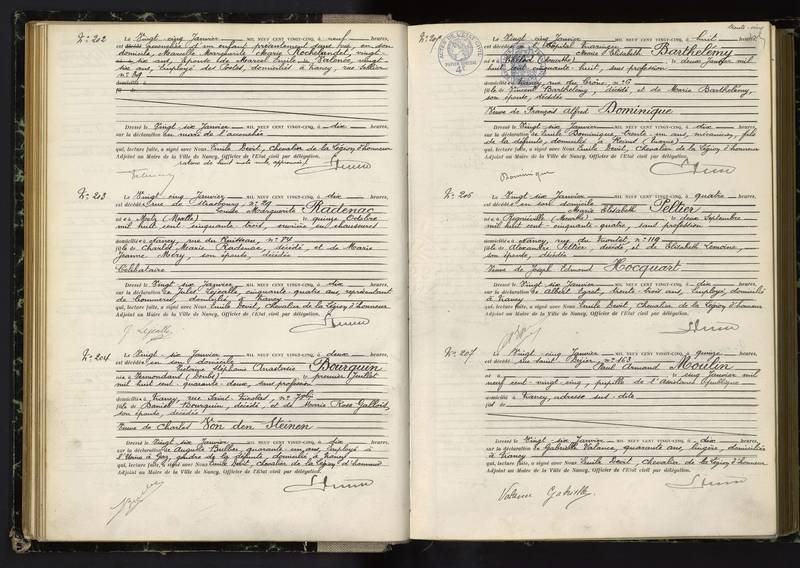 N° 202
Le Vingt cinq Janvier MIL NEUF CENT VINGT-CINQ, à neuf heures,
est accouchée d'un enfant présentement sans vie, en son
domicile, Marcelle Marguerite Marie Rochelandel, vingt-
six ans, épouse de Marcel Emile Valence, vingt
six ans, employé des Postes, domiciliés à Nancy, rue
n° 39
Dressé le Vingt-six Janvier MIL NEUF CENT VINGT-CINQ, à dix heures,
sur la déclaration du mari de l'accouchée
qui, lecture faite, a signé avec Nous, Emile Devit, Chevalier de la Légion d'honneur
Adjoint au Maire de la Ville de Nancy, Officier de l'Etat civil par délégation.
N° 203
Le Vingt cinq Janvier MIL NEUF CENT VINGT-CINQ, à dix heures,
est décédée rue de Strasbourg, n° 29
Louise Marguerite Radenac
née à Metz (Moselle) le quinze Octobre
mil huit cent cinquante trois, ouvrière en chaussures
domiciliée à Nancy, rue du Ruisseau, n° 84
fille de Charles Marie Radenac, décédé, et de Marie
Jeanne Méry, son épouse, décédée
Célibataire
Dressé le Vingt-six Janvier MIL NEUF CENT VINGT-CINQ, à dix heures,
sur la déclaration de Jules Lejealle, cinquante-quatre ans, représentant
de Commerce, domicilié à Nancy
qui, lecture faite, a signé avec Nous, Emile Devit, Chevalier de la Légion d'honneur
Adjoint au Maire de la Ville de Nancy, Officier de l'Etat civil par délégation.
J Lejealle
N° 204
Le Vingt-six Janvier MIL NEUF CENT VINGT-CINQ, à deux heures,
est décédée en son domicile
Stéphanie Anastasie Bourquin
née à Vermondans (Doubs) le premier Juillet
mil huit cent quarante-deux, sans profession
domiciliée à Nancy, rue Saint-Nicolas, n° 78
fille de Daniel Bourquin, décédé, et de Marie Rose Gallois,
son épouse, décédée
Veuve de Charles Von den Steinen
Dressé le Vingt six Janvier MIL NEUF CENT VINGT-CINQ, à dix heures,
sur la déclaration de Auguste Bullier, quarante-un ans, employé à
l'Usine à Gaz, gendre de la défunte, domicilié à Nancy
qui, lecture faite, a signé avec Nous, Emile Devit, Chevalier de la Légion d'honneur
Adjoint au Maire de la Ville de Nancy, Officier de l'Etat civil par délégation.
trente-cinq
N° 205
Le Vingt cinq Janvier MIL NEUF CENT VINGT-CINQ, à huit heures,
est décédée à l'Hôpital Maringer
Marie Elisabeth Barthélemy
(Meurthe) le deux Janvier mil
huit cent cinquante-huit, sans profession
domiciliée à Nancy, rue du Crône, n° 6
fille de Vincent Barthélemy, décédé et de Marie Barthélemy,
son épouse, décédée
Veuve de François Alfred Dominique
Dressé le Vingt-six Janvier MIL NEUF CENT VINGT-CINQ, à dix heures,
sur la déclaration de Emile Dominique, trente-un ans, mécanicien, fils
de la défunte, domicilié à Reims (Marne)
qui, lecture faite, a signé avec Nous, Emile Devit, Chevalier de la Légion d'honneur
Adjoint au Maire de la Ville de Nancy, Officier de l'Etat civil par délégation.
Dominique
N° 206
Le Vingt-six Janvier MIL NEUF CENT VINGT-CINQ, à quatre heures,
est décédée en son domicile
Marie Elisabeth Peltier
née à Regniéville (Meurthe) le deux Septembre
mil huit cent cinquante-quatre, sans profession
domiciliée à Nancy, rue du Montet, n° 119
fille de Alexandre Peltier, décédé et de Elisabeth Lemoine,
son épouse, décédée
Veuve de Joseph Edmond Hocquart
Dressé le Vingt-six Janvier MIL NEUF CENT VINGT-CINQ, à dix heures,
sur la déclaration de Albert Egret, trente-trois ans, employé, domicilié
à Nancy
qui, lecture faite, a signé avec Nous, Emile Devit, Chevalier de la Légion d'honneur
Adjoint au Maire de la Ville de Nancy, Officier de l'Etat civil par délégation.
N° 207
Le Vingt-cinq Janvier MIL NEUF CENT VINGT-CINQ, à quinze heures,
est décédé rue Saint Dizier, n° 163
Paul Armand Moulin
né à le cinq Janvier mil
neuf cent vingt-cinq, pupille de l'Assistance publique
domicilié à Nancy, adresse sus-dite
fils de
Dressé le Vingt-six Janvier MIL NEUF CENT VINGT-CINQ, à dix heures,
sur la déclaration de Gabrielle Valance, quarante ans, lingère, domiciliée
à Nancy
qui, lecture faite, a signé avec Nous, Emile Devit, Chevalier de la Légion d'honneur
Adjoint au Maire de la Ville de Nancy, Officier de l'Etat civil par délégation.
Valance Gabrielle.